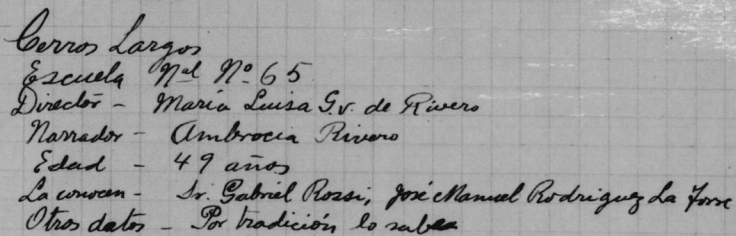 Cerros Largos
Escuela Nal Nº 65
Director - María Luisa G. v. de Rivero
Narrador - Ambrocia Rivero
Edad - 49 años
La conocen - Sr. Gabriel Rossi, José Manuel Rodriguez La Torre
Otros datos - Por tradición lo sabe